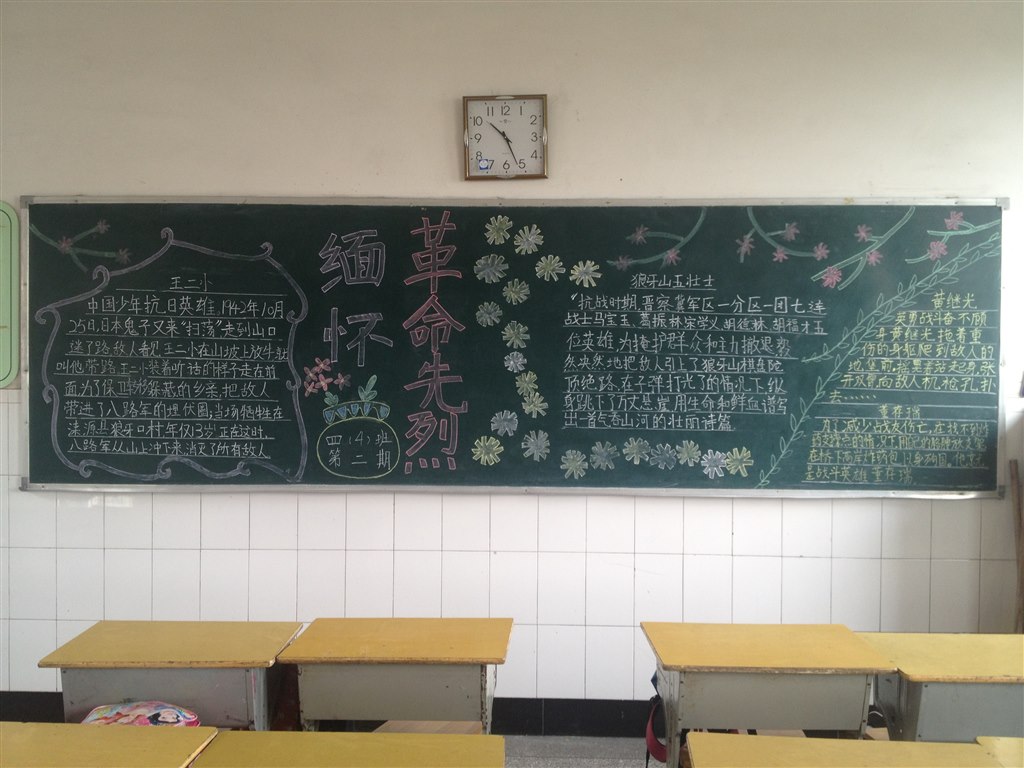 11 12 1
10 2
9 3
8 4
7 6 5
王二小
中国少年抗日英雄,1942年10月
25日,日本鬼子又来“扫荡”走到山口
迷了路敌人看见王二小在山坡上放牛就
叫他带路王二小装着听话的样子走在前
面为了保卫转移躲藏的乡亲,把敌人
带进了八路军的埋伏圈,当场牺牲在
涞源县狼牙口村年仅13岁正在这时,
八路军从山上冲下来消灭了所有敌人
缅怀
革命先烈
四(4)班
第二期
狼牙山五壮士
“抗战时期,晋察冀军区一分区一团七连
战士马宝玉、葛振林、宋学义、胡德林、胡福才五
位英雄,为掩护群众和主力撤退,毅
然决然地把敌人引上了狼牙山棋盘陀
顶绝路,在子弹打光了的情况下,纵
身跳下了万丈悬崖,用生命和鲜血谱写
出一首气吞山河的壮丽诗篇。
黄继光
英勇战斗奋不顾
身黄继光拖着重
伤的身躯爬到敌人的
地堡前,
开双臂向敌人机枪孔扑
去……
董存瑞
为了减少战友伤亡,在找不到
在桥下高举炸药包,只身
是战斗英雄董存瑞